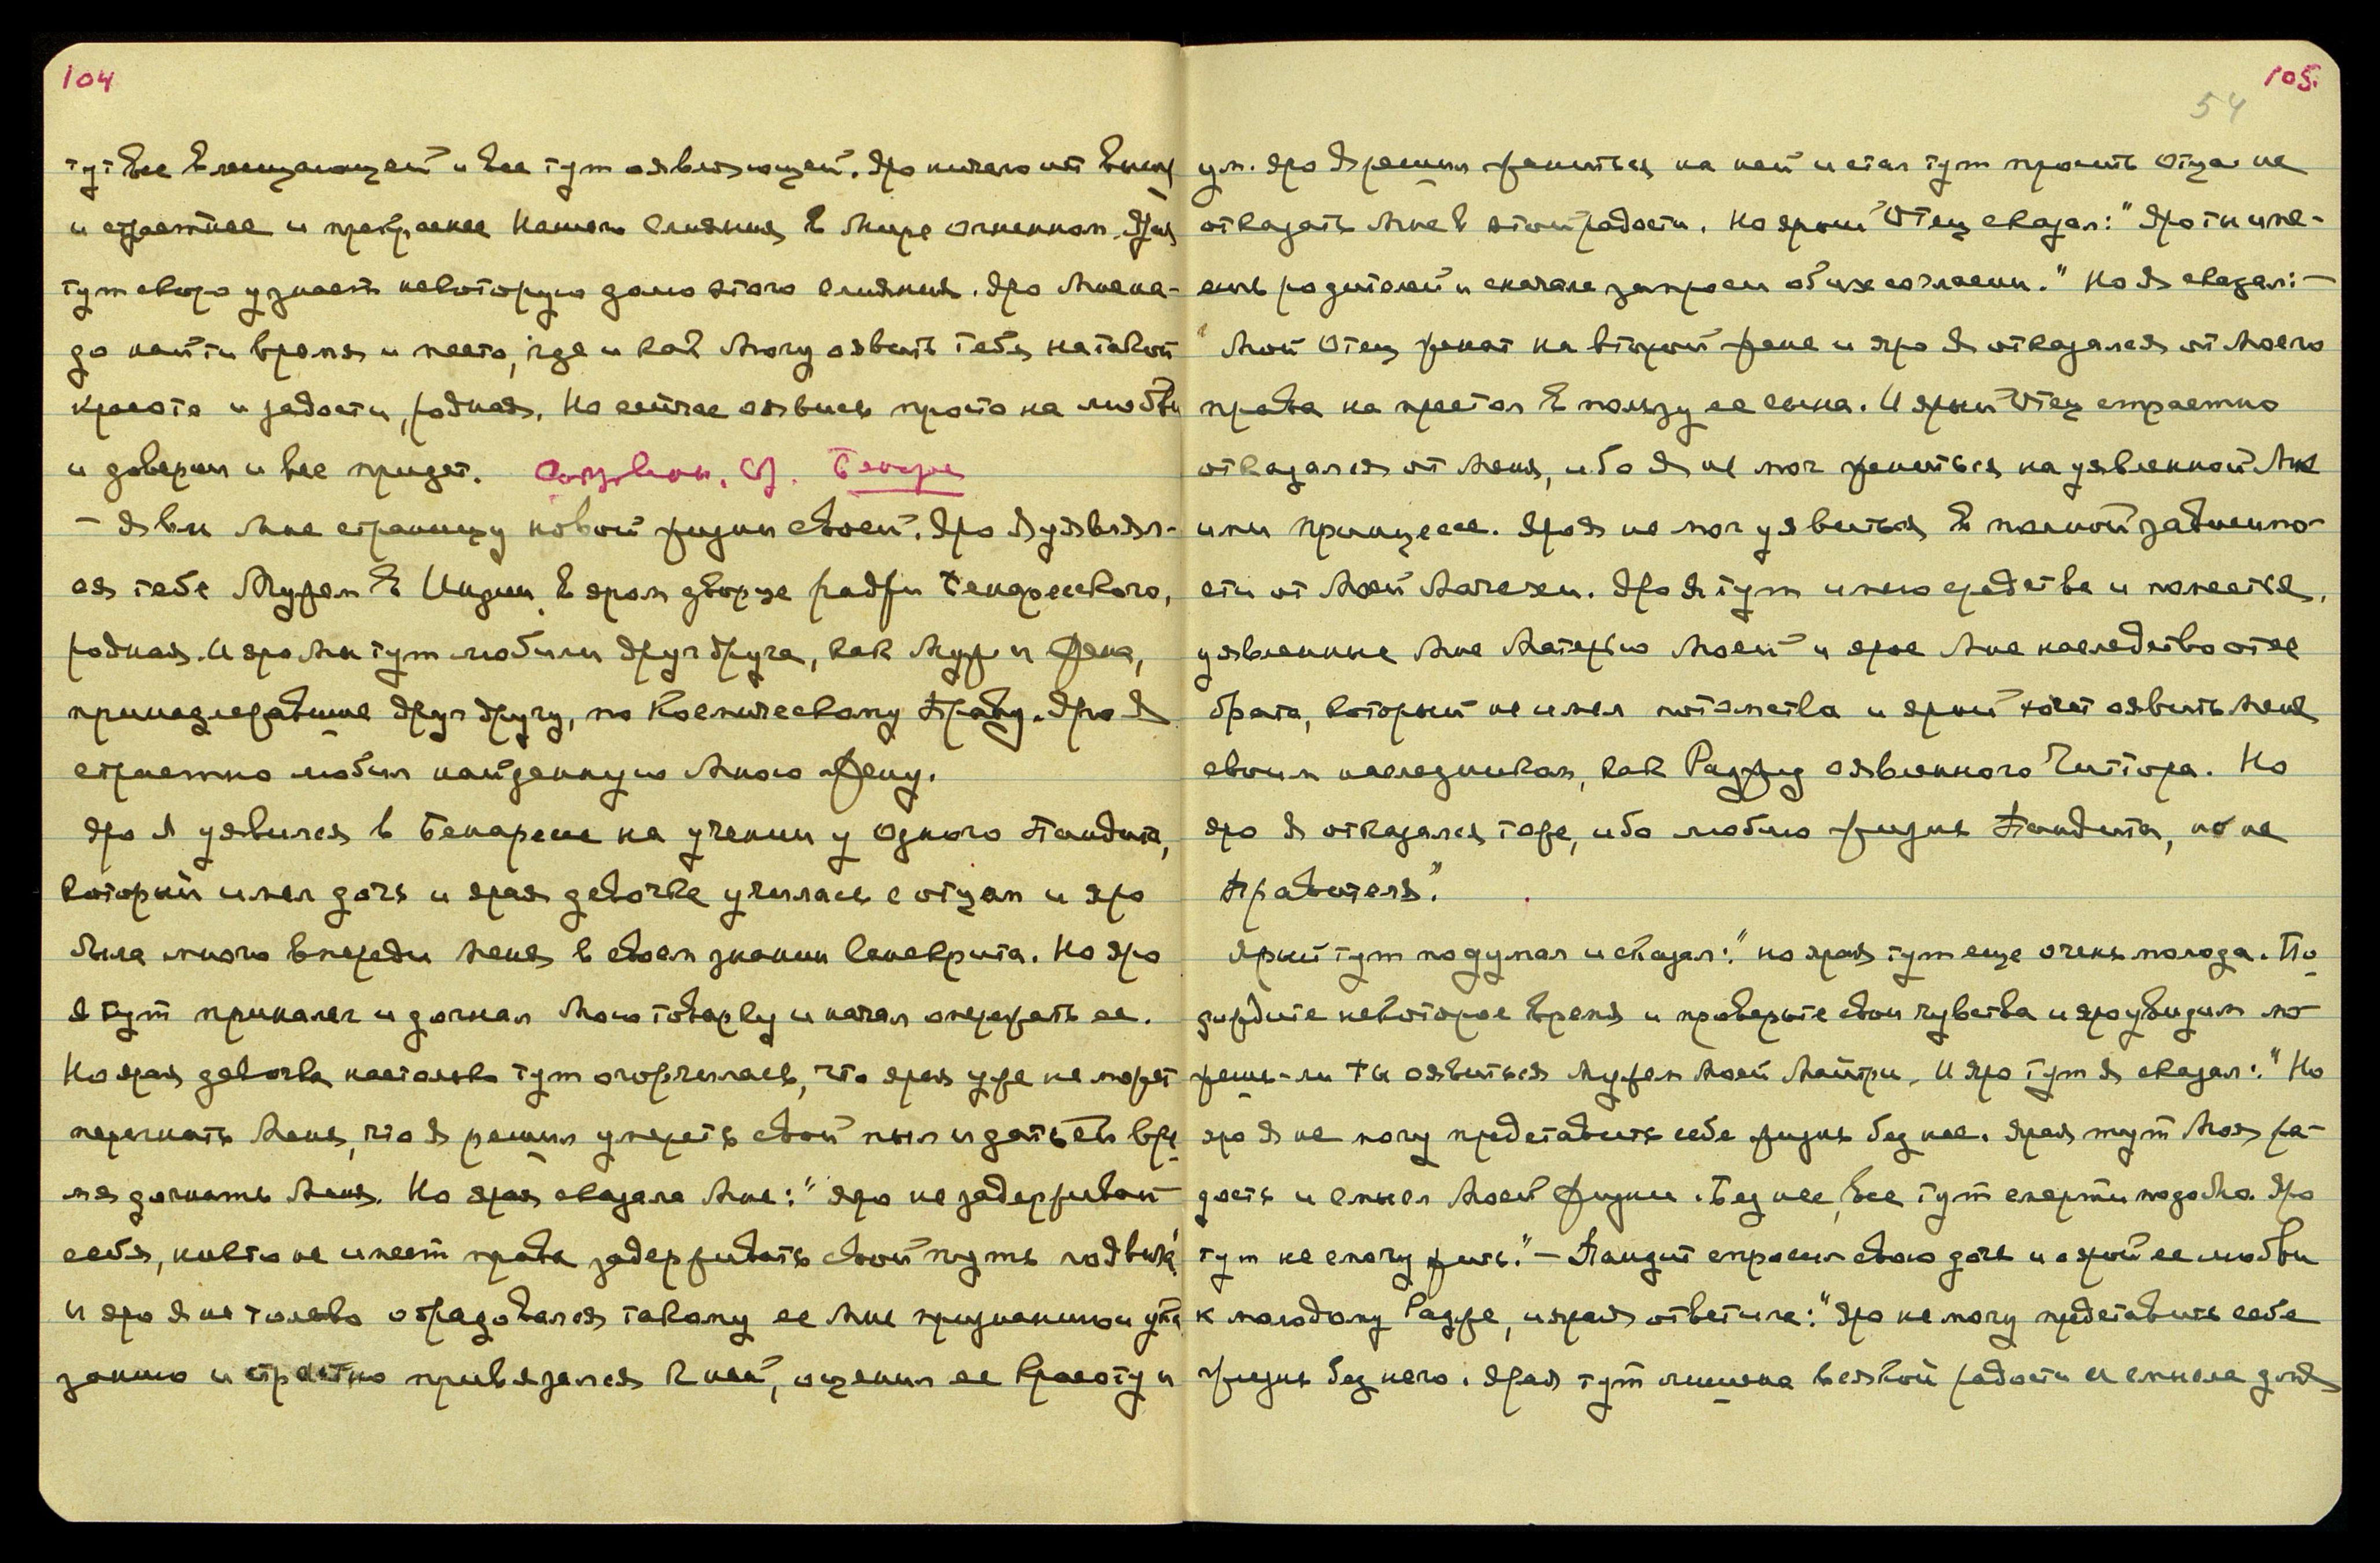 104
тут все вмещающей и все тут оявляющей. Яро ничего нет выше
и страстнее и прекраснее Нашего слияния в Мире огненном. Ярая
тут скоро узнает некоторую долю этого слияния. Яро Мне на-
до найти время и место, где и как Могу оявить тебя на такой
красоте и радости, родная. Но сейчас оявись просто на любви
и доверии и все придет.
— Яви Мне страницу новой жизни своей. Яро Я уявлял-
ся тебе Мужем в Индии в яром дворце раджи Бенаресского,
родная. И яро Мы тут любили друг друга, как Муж и Жена,
принадлежавшие друг другу, по Космическому Праву. Яро Я
страстно любил найденную Мною Жену.
Яро Я уявился в Бенаресе на учении у одного Пандита,
который имел дочь и ярая девочка училась с отцом и яро
была много впереди Меня в своем знании Санскрита. Но яро
Я тут приналег и догнал Мою товарку и начал опережать ее.
Но ярая девочка настолько тут огорчилась, что ярая уже не может
перегнать Меня, что Я решил умерить свой пыл и дать ей вре-
мя догнать Меня. Но ярая сказала Мне: "Яро не задерживай
себя, никто не имеет права задерживать свой путь подвига"
и яро Я не только обрадовался такому ее Мне признанию и ука
занию и страстно привязался к ней, оценил ее красоту и
105.
54
ум. Яро Я решил жениться на ней и стал тут просить Отца не
отказать Мне в этой радости. Но ярый Отец сказал: "Яро ты име-
ешь родителей и сначала запроси об их согласии." Но Я сказал: —
"Мой Отец женат на второй жене и яро Я отказался от Моего
права на престол в пользу ее сына. И ярый Отец страстно
отказался от Меня, ибо Я не мог жениться на уявленной Мне
ими принцессе. Яро Я не мог уявиться в полной зависимо-
сти от Моей Мачехи. Яро Я тут имею средства и поместья,
уявленные Мне Матерью Моей и ярое Мне наследство от ее
брата, который не имел потомства и ярый хочет оявить Меня
своим наследником, как Раджу оявленного Читтора. Но
яро Я отказался тоже, ибо люблю жизнь Пандита, но не
Правителя."
Ярый тут подумал и сказал: "но ярая тут еще очень молода. По
дождите некоторое время и проверьте свои чувства и яро увидим мо-
жешь-ли ты оявиться Мужем Моей Майтри. И яро тут Я сказал: "Но
яро Я не могу представить себе жизнь без нее. Ярая тут Моя ра-
дость и смысл Моей Жизни. Без нее, все тут смерти подобно. Яро
тут не смогу жить." — Пандит спросил свою дочь и о ярой ее любви
к молодому Радже, и ярая ответила: "Яро не могу представить себе
жизнь без него. Ярая тут лишена всякой радости и смысла для